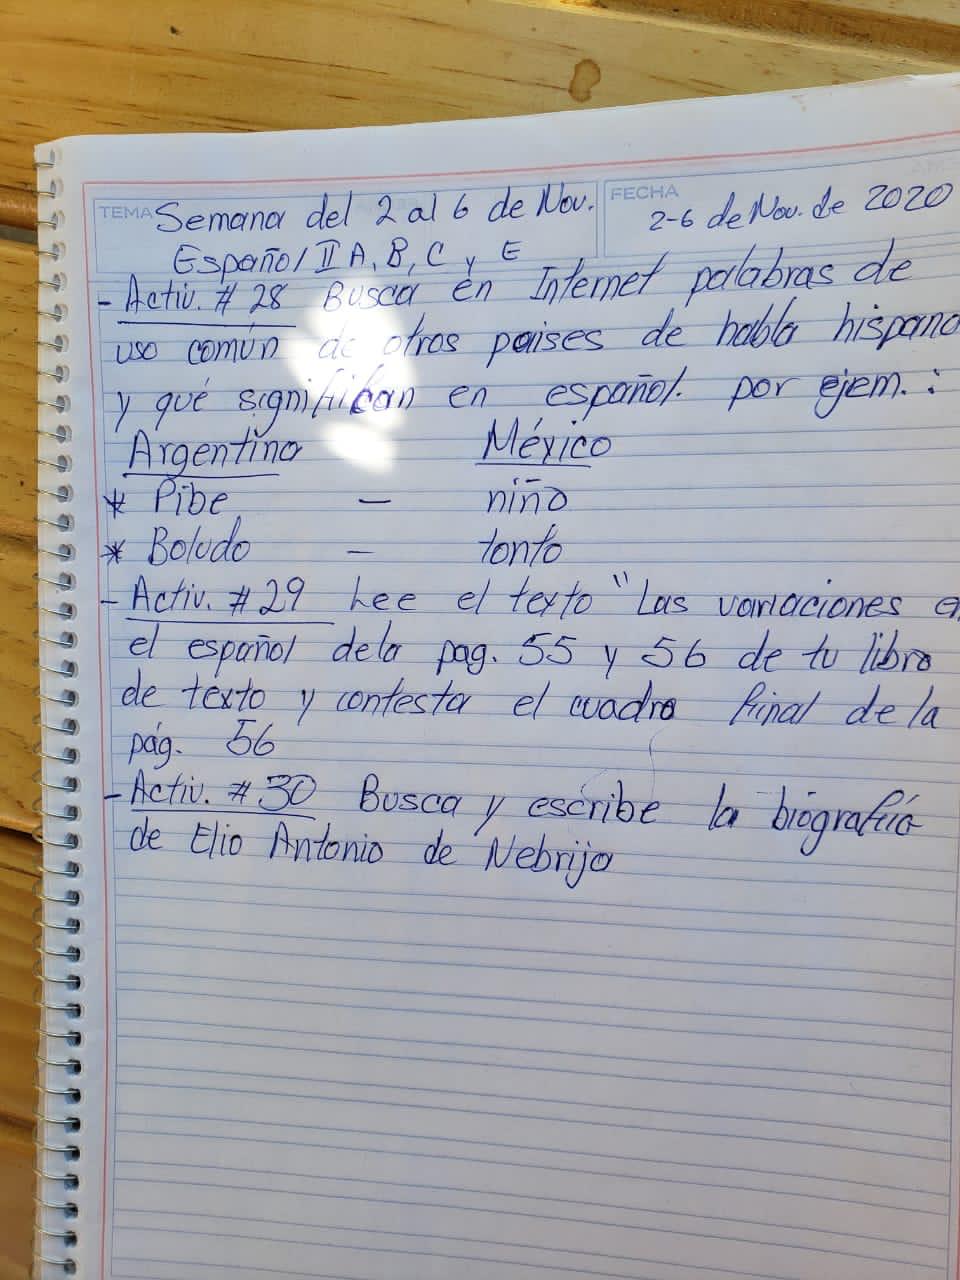 TEMA Semana del 2 al 6 de Nov. FECHA 2-6 de Nov. de 2020
Español II A, B, C y E
- Activ. # 28 Busca en Internet palabras de
uso común de otros paises de habla hispana
y qué significan en español. por ejem.:
Argentina México
* Pibe - niño
* Boludo - tonto
- Activ. # 29 Lee el texto "Las variaciones en
el español dela pag. 55 y 56 de tu libro
de texto y contesta el cuadro final de la
pág. 56
- Activ. # 30 Busca y escribe la biografía
de Elio Antonio de Nebrija